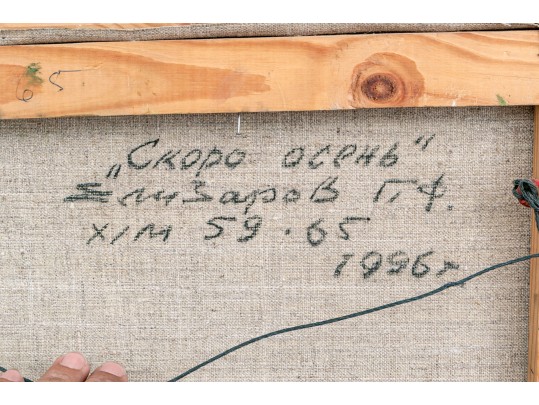 „Скоро осень“
Елизаров П.Ф.
х/м 59·65
1996г